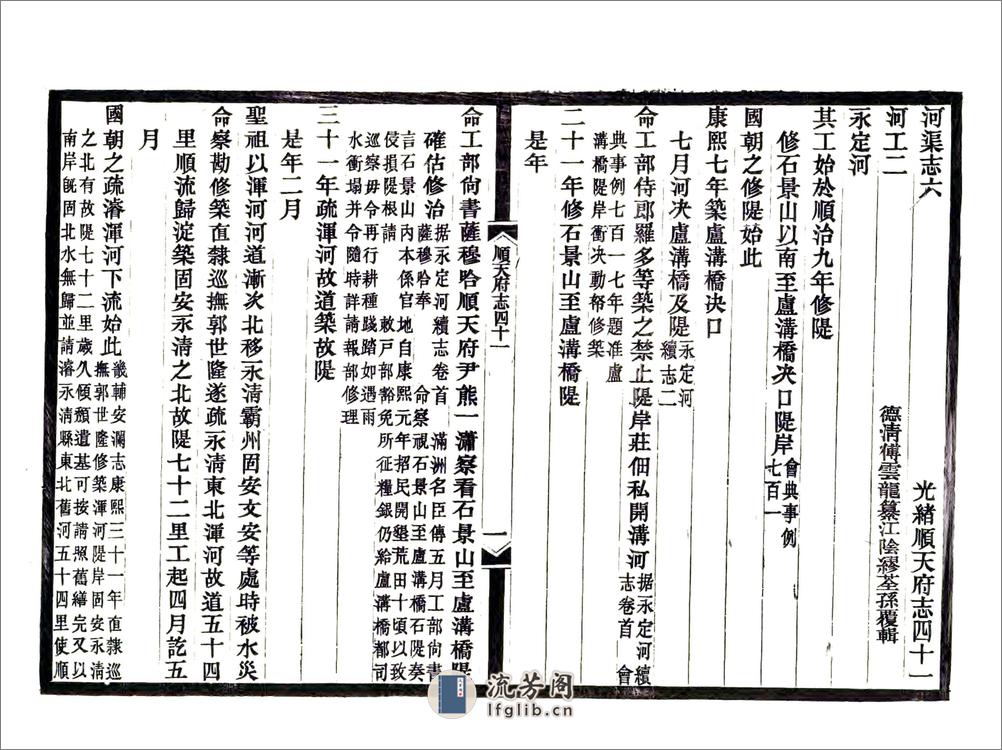 河渠志六　光緒順天府志四十一
河工二　德清傅雲龍纂江陰繆荃孫覆輯
永定河
其工始於順治九年修隄
修石景山以南至盧溝橋決口隄岸會典事例
七百一
國朝之修隄始此
康熙七年築盧溝橋決口
七月河決盧溝橋及隄永定河
續志二
命工部侍郎羅多等築之禁止隄岸莊佃私開溝河据永定河續
志卷首　會
典事例七百一七年題准盧
溝橋隄岸衝決動帑修築
二十一年修石景山至盧溝橋隄
是年
順天府志四十一
一
命工部尚書薩穆哈順天府尹熊一瀟察看石景山至盧溝橋隄
確估修治据永定河續志卷首　滿洲名臣傳五月工部尚書
薩穆哈奉　命察視石景山至盧溝橋石隄奏
言石景山內本係官地自康熙元年招民開墾荒田十頃以致
侵損隄根請　敕戶部豁免所征糧銀仍給盧溝橋都司
巡察毋令再行耕種踐踏如遇雨
水衝塌并令隨時詳請報部修理
三十一年疏渾河故道築故隄
是年二月
聖祖以渾河河道漸次北移永清霸州固安文安等處時被水災
命察勘修築直隸巡撫郭世隆遂疏永清東北渾河故道五十四
里順流歸淀築固安永清之北故隄七十二里工起四月訖五
月
國朝之疏濬渾河下流始此畿輔安瀾志康熙三十一年直隸巡
撫郭世隆修築渾河隄岸固安永清
之北有故隄七十二里歲久傾頹遺基可按請照舊繕完又以
南岸旣固北水無歸並請濬永清縣東北舊河五十四里使順
流芳阁
lfglib.cn